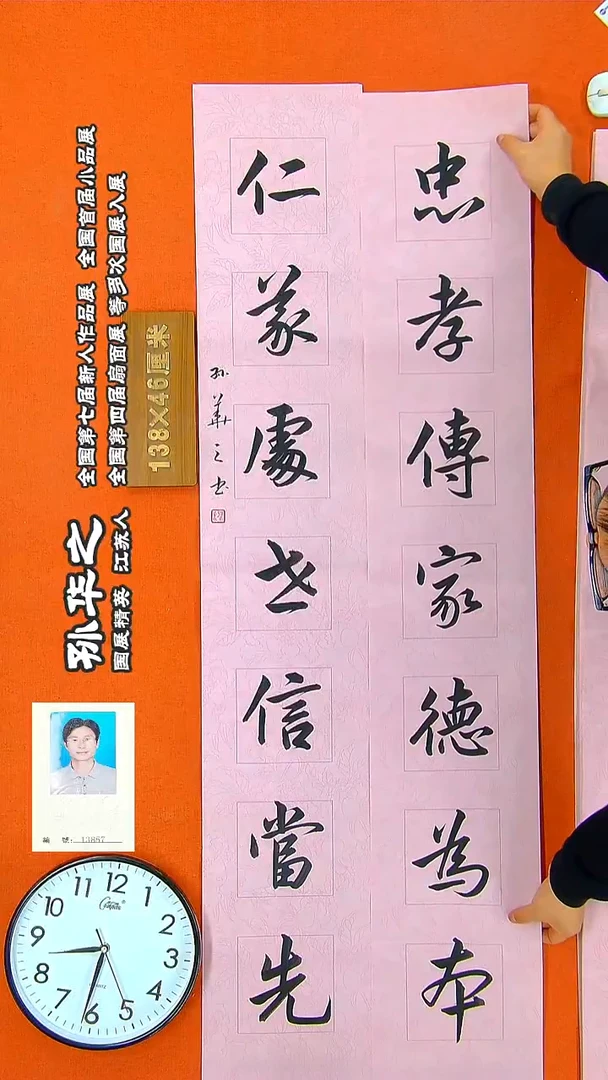 忠孝傳家德為本
仁義處世信當先
孙華之书
全国第七届新人作品展 全国首届小品展
全国第四届扇面展 等多次国展入展
138×46厘米
孙华之
国展精英 江苏人
編 號: 13887
12
1
2
3
4
5
6
7
8
9
10
11